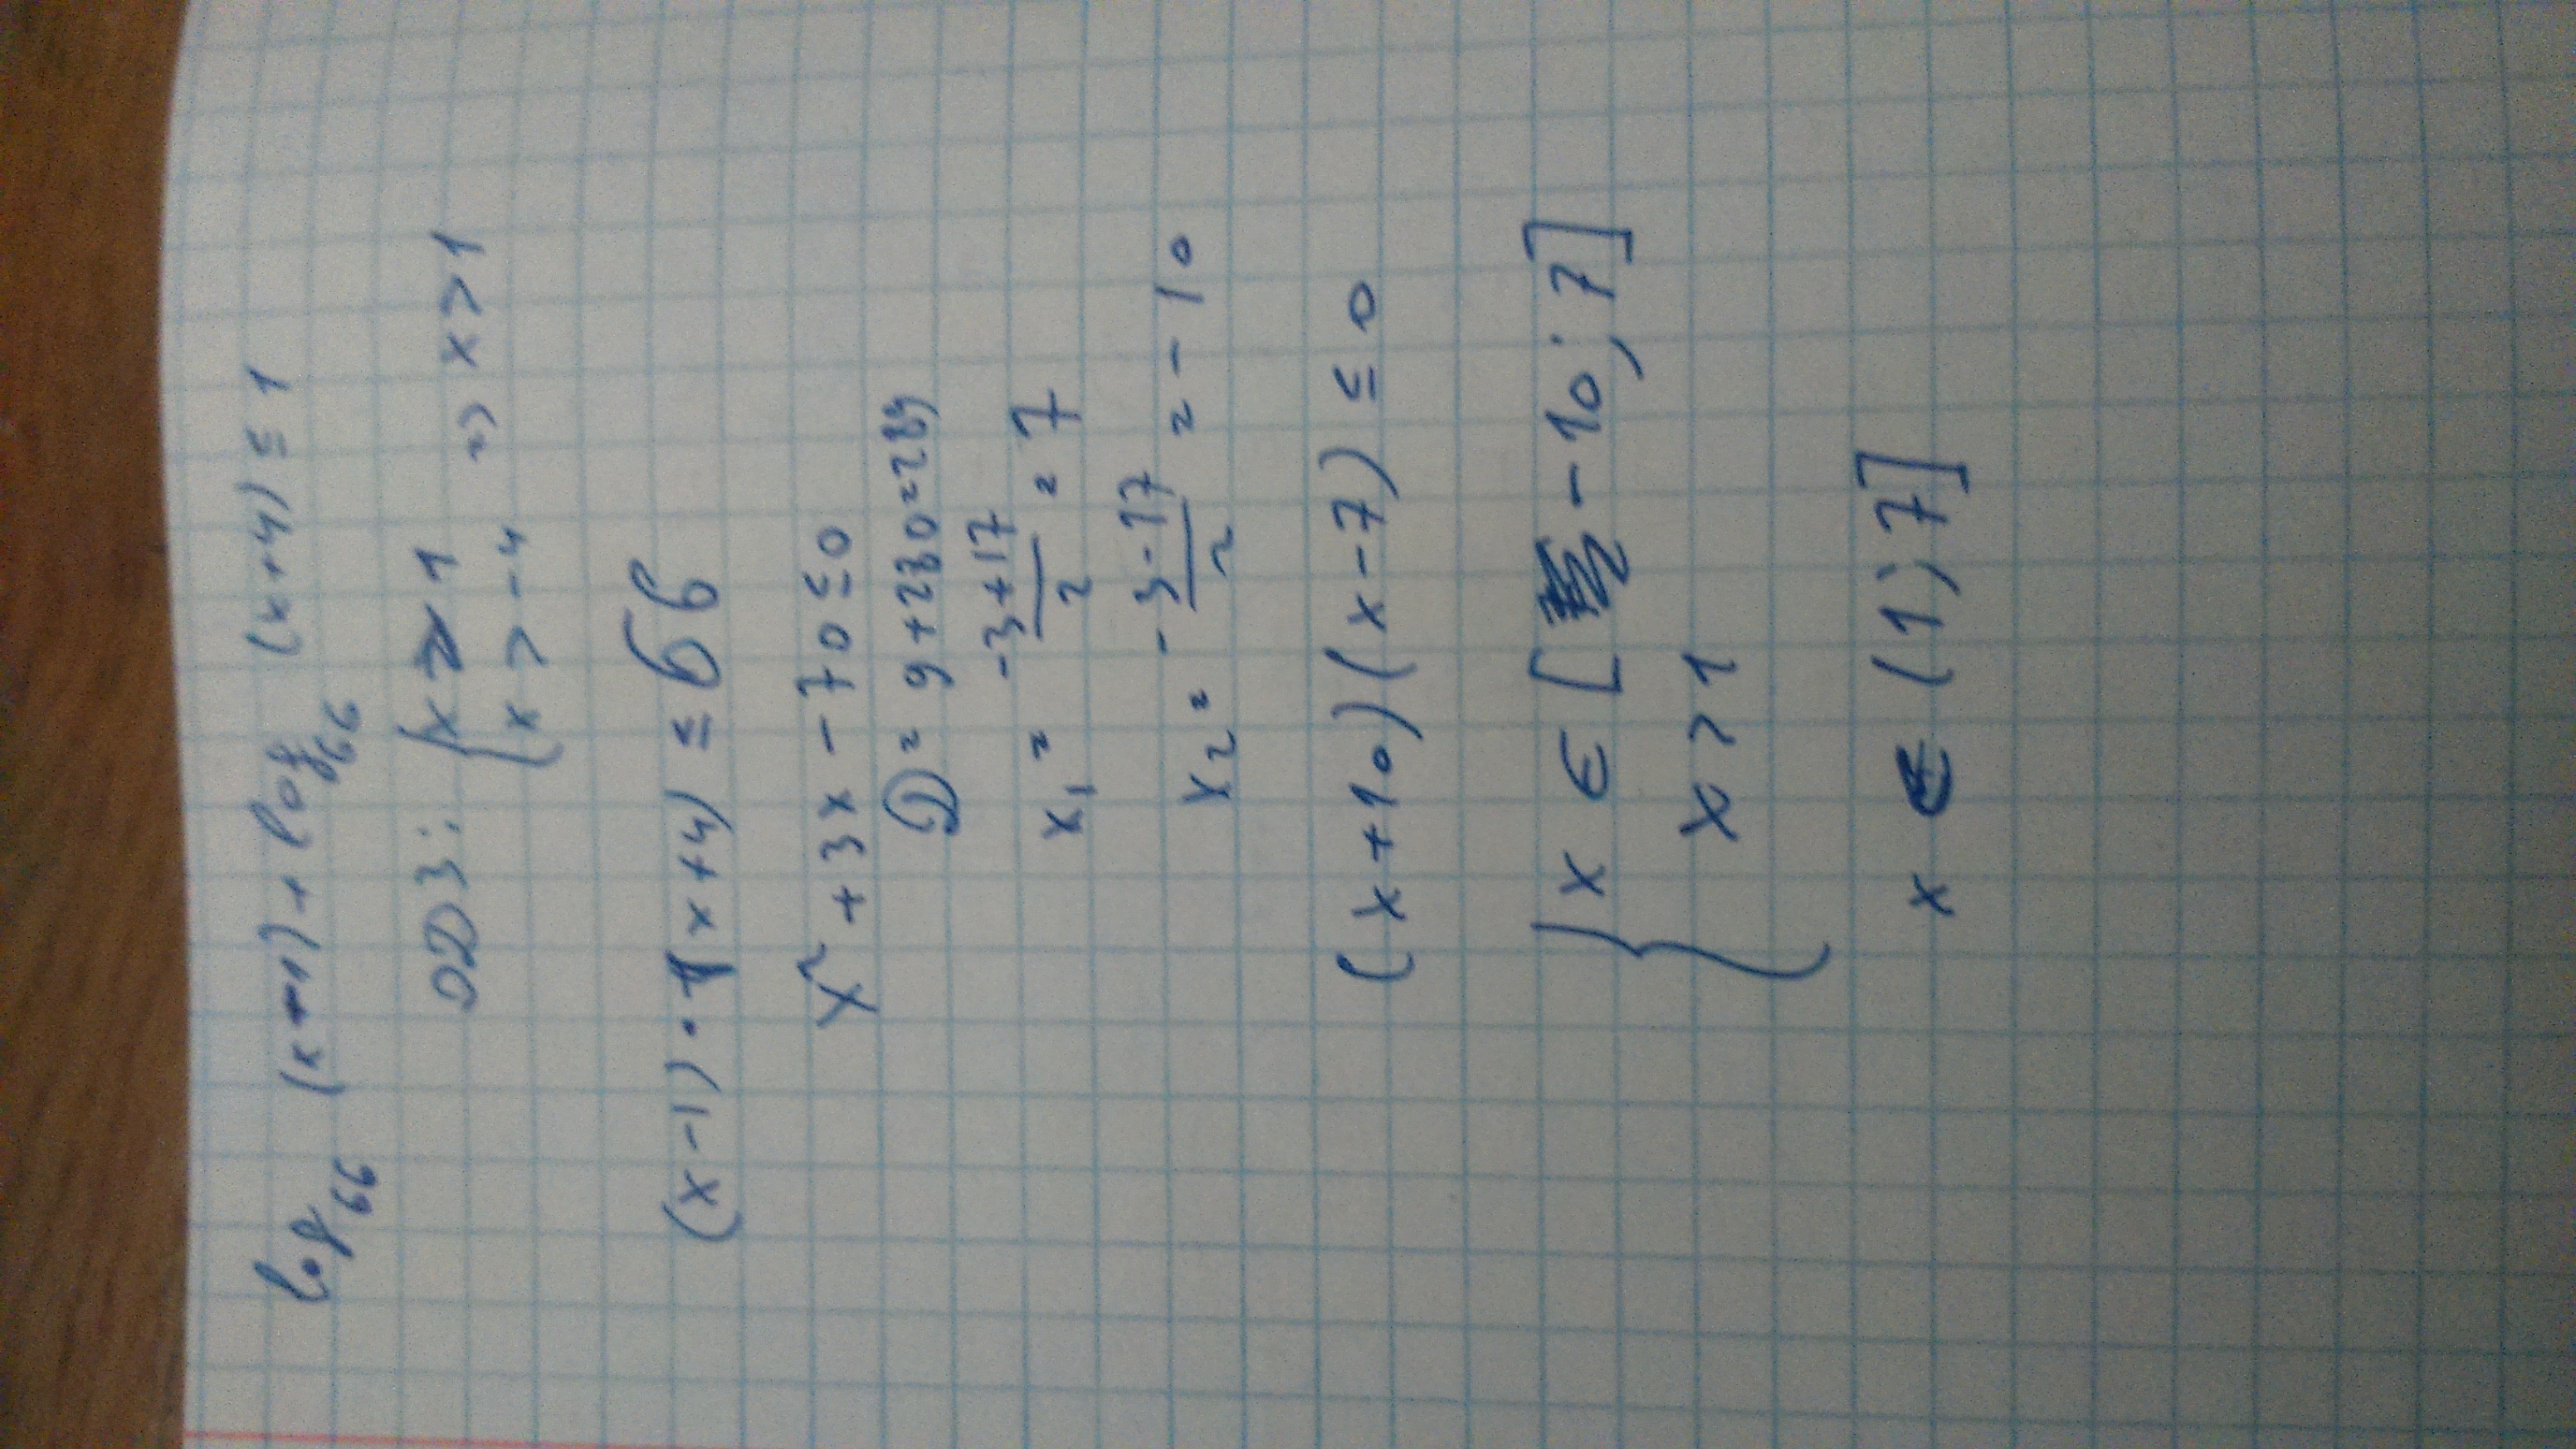 log₆₆ (x-1) + log₆₆ (x+4) ≤ 1
ОДЗ: { x > 1
x > -4 => x > 1
(x-1)·(x+4) ≤ 66
x² + 3x - 70 ≤ 0
D = 9 + 280 = 289
x₁ = (-3+17)/2 = 7
x₂ = (-3-17)/2 = -10
(x+10)(x-7) ≤ 0
{ x ∈ [-10; 7]
x > 1
x ∈ (1; 7]